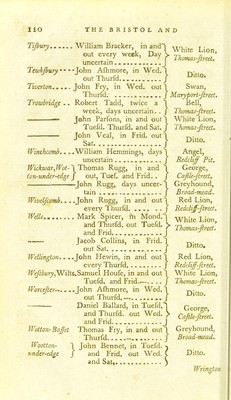 110 THE BRISTOL AND
Tisbury..... William Bracker, in and
out every week, Day
uncertain
White Lion,
Thomas-street.
Tewksbury.... John Ashmore, in Wed.
out Thursd.
Ditto.
Tiverton..... John Fry, in Wed. out
Thursd.
Swan,
Maryport-street.
Trowbridge .. Robert Tadd, twice a
week, days uncertain.
Bell,
Thomas-street.
—— John Parsons, in and out
Tuesd. Thursd. and Sat.
White Lion,
Thomas-street.
—— John Veal, in Frid. out
Sat.
Ditto.
Winchcomb.... William Hemmings, days
uncertain
Angel,
Redcliff Pit.
Wickwar, Wot-
ton-under-edge
Thomas Rugg, in and
out, Tuesd. and Frid.
George,
Castle-street.
—— John Rugg, days uncer-
tain
Greyhound,
Broad-mead.
Wivelscomb.... John Rugg, in and out
every Thursd.
Red Lion,
Redcliff-street.
Wells........ Mark Spicer, in Mond.
and Thursd. out Tuesd.
and Frid.
White Lion,
Thomas-street.
—— Jacob Collins, in Frid.
out Sat.
Ditto.
Wellington.... John Hewin, in and out
every Thursd.
Red Lion,
Redcliff-street.
Westbury, Wilts, Samuel House, in and out
Tuesd. and Frid.
White Lion,
Thomas-street.
Worcester..... John Ashmore, in Wed.
out Thursd.
Ditto.
—— Daniel Ballard, in Tuesd.
and Thursd. out Wed.
and Frid.
George,
Castle-street.
Watton-Basset Thomas Fry, in and out
Thursd.
Greyhound,
Broad-mead.
Wootton-
under-edge
John Bennet, in Tuesd.
and Frid, out Wed.
and Sat.
Ditto.
Wrington